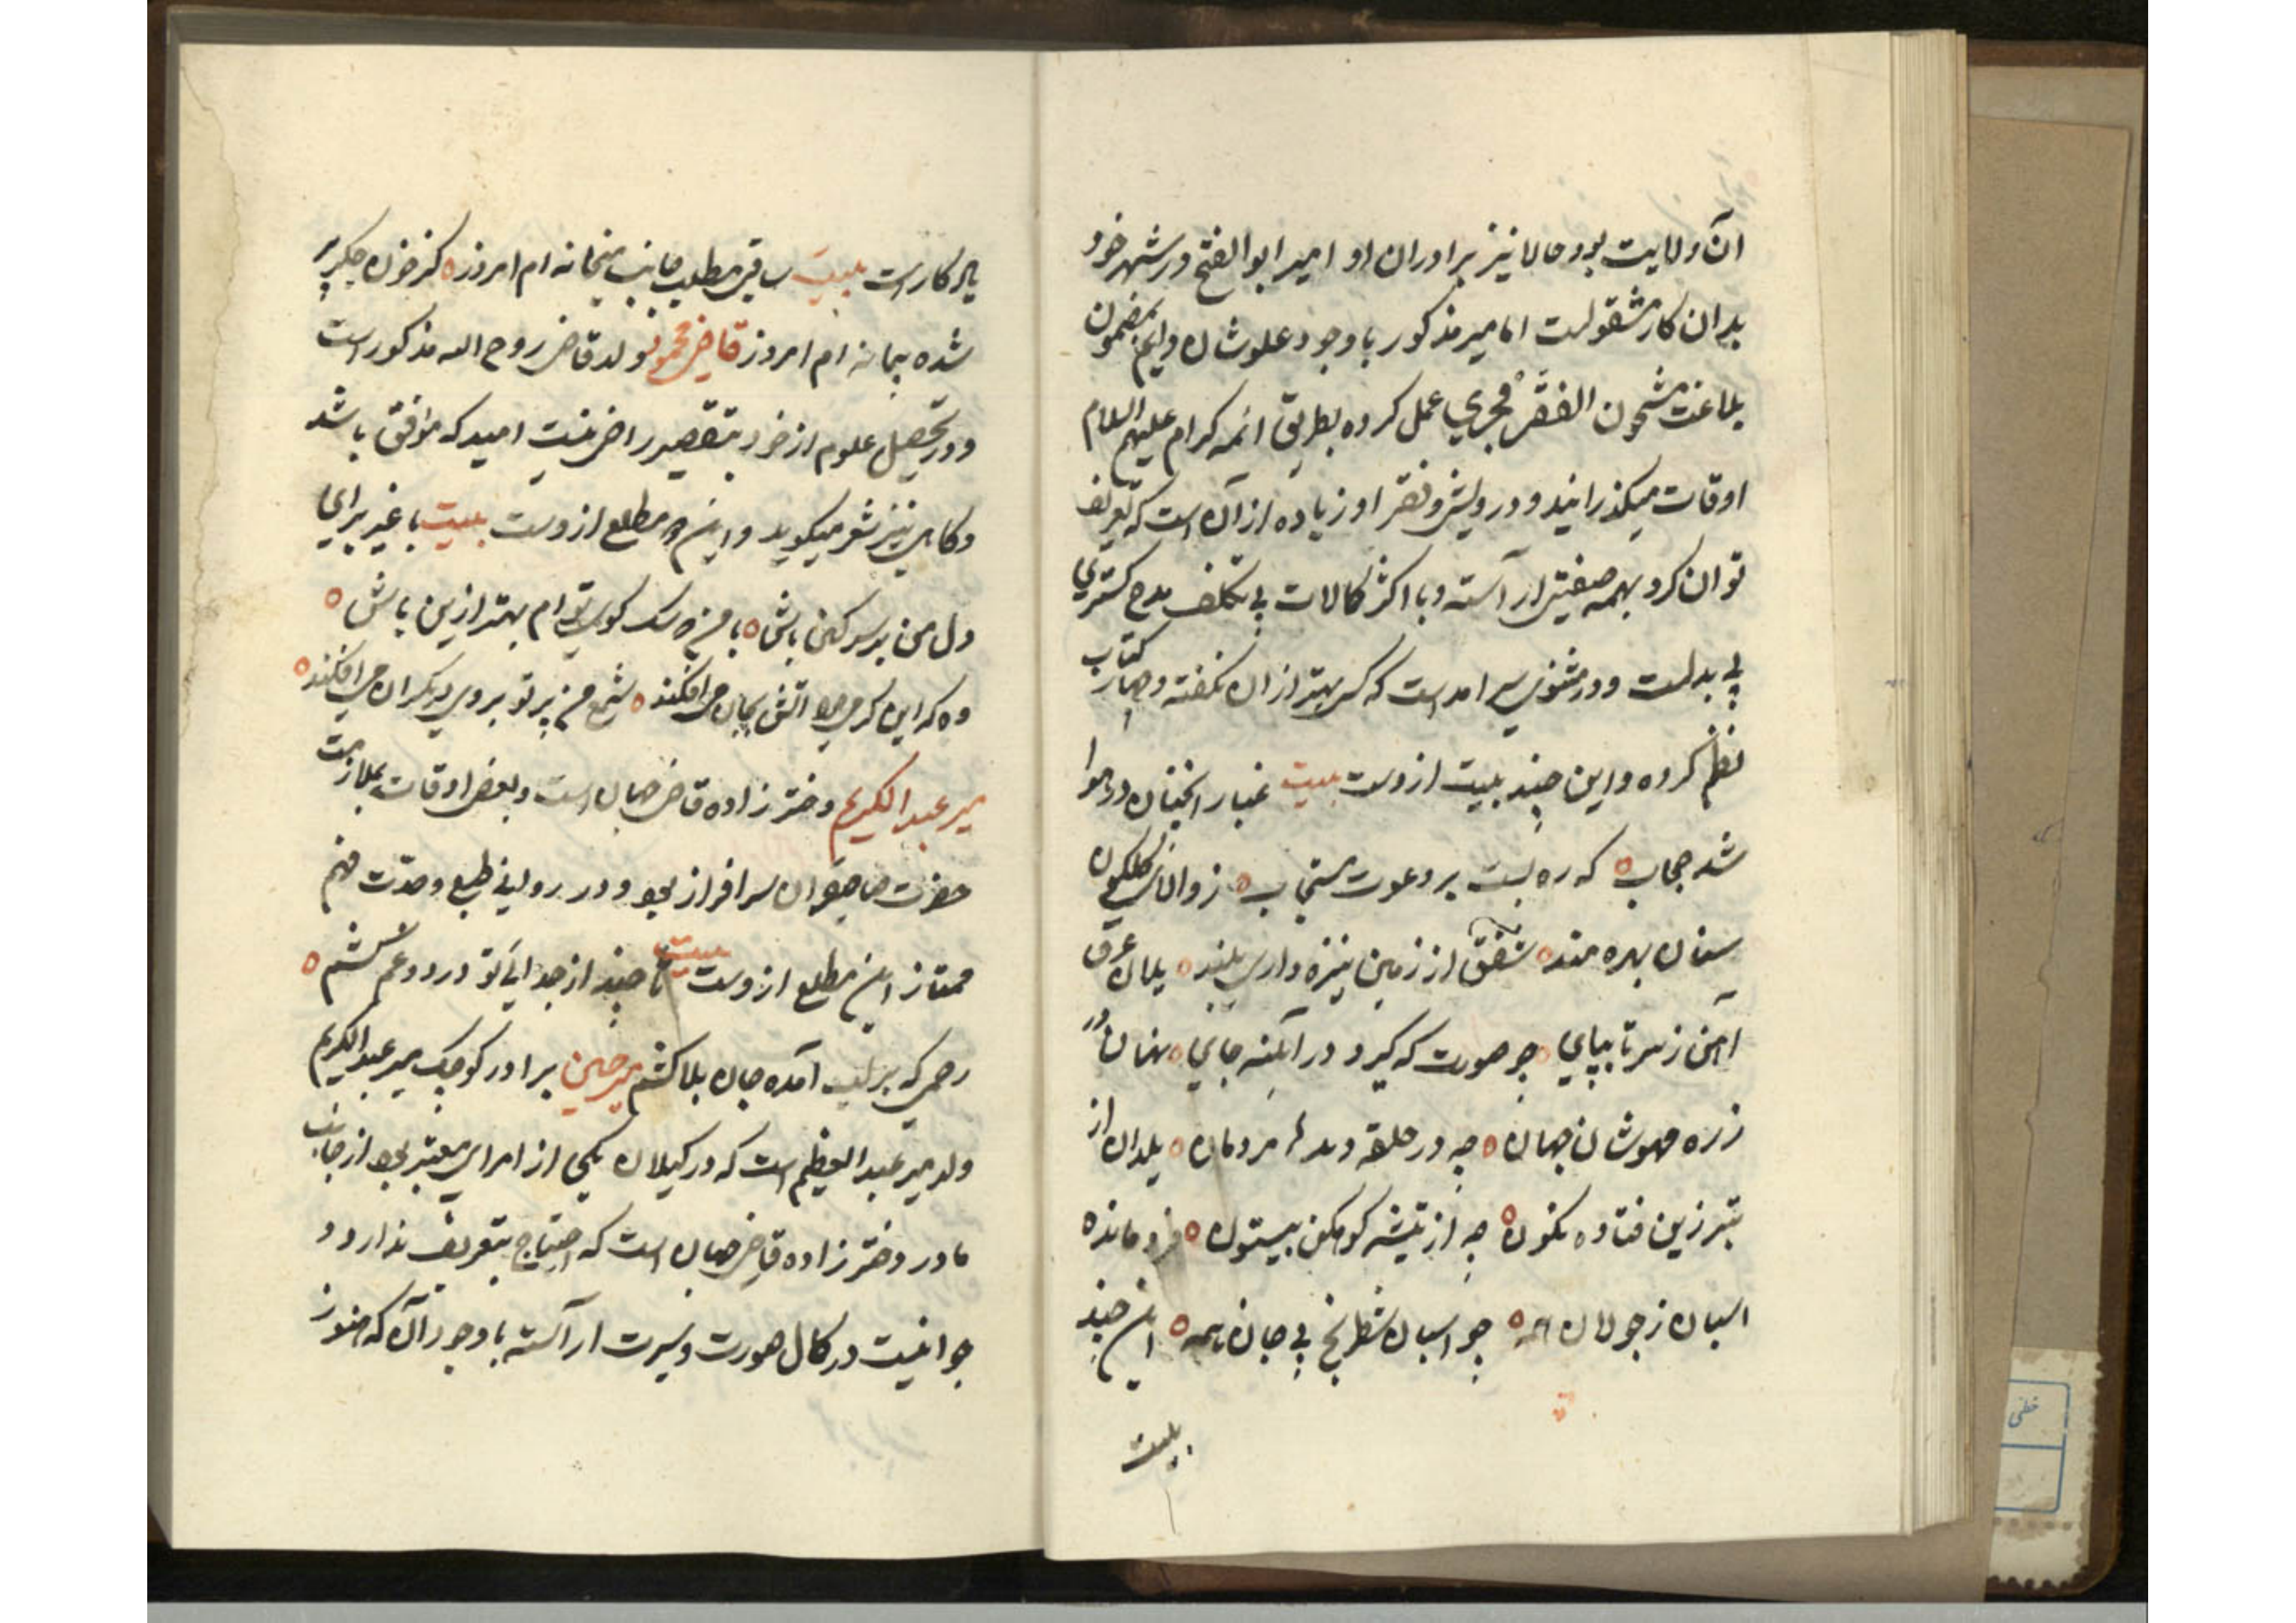 آن ولایت بود حالا نیز برادران او امیر ابوالفتح در شهر خود
بدان کار مشغولست اما میر مذکور با وجود علو شان و این بمضمون
بلاغت مشحون الفقر فخری عمل کرده بطریق ائمه کرام علیهم السلام
اوقات میگذرانید و درویشی و فقر او زیاده از آن است که تعریف
توان کرد بهمه صفتی آراسته و با اکثر کمالات بی تکلف مدح کستری
بی بدلست و در مثنوی سر امدست که کس بهتر از ان نکفته و چهار کتاب
نظم کرده و این چند بیت ازوست بیت غبار انچنان در هوا
شد حجاب که ره بست بر دعوت مستجاب ز والماس کلکون
سنان بهره مند شفق از زمین نیزه داری بلند یلان غرق
آهن ز سر تا بپای چو صورت که کیرد در آینه جای نهان در
زره مهوشان جهان چه در حلقه دیده مردمان یلان از
تبر زین فتاده نکون چه از تیشه کوهکن بیستون فرو مانده
اسبان ز جولان همه چو اسبان شطرنج بی جان همه این چند
بیت
یاد کارست بیت ساقی مطلب جانب میخانه ام امروز کز خون جکر پر
شده پیمانه ام امروز قاضی محمود ولد قاضی روح الله مذکور است
و در تحصیل علوم از خود بتقصیر راضی نیست امید که موفق باشد
و کاهی نیز شعر میکوید و این دو مطلع ازوست بیت با غیر برای
دل من بر سر کین باش با من که سک کوی توام بهتر ازین باش
وه که این کرمی مرا اتش بجان می افکند شمع من پرتو بروی دیکران می افکند
میر عبد الکریم دختر زاده قاضی جهان است و بعضی اوقات بملازمت
حضرت صاحبقران سرافراز بود و در روانی طبع و حدّت فهم
ممتاز این مطلع ازوست بیت تا چند از جدایی تو درد و غم کشم
رحمی که بر لب آمده جان بلا کشم میر حسین برادر کوچک میر عبد الکریم
ولد میر عبد العظیم است که در کیلان یکی از امرای معتبر بود از جانب
مادر دختر زاده قاضی جهان است که احتیاج بتعریف ندارد و
جوانیست در کمال صورت و سیرت آراسته با وجود آن که هنوز
خطی